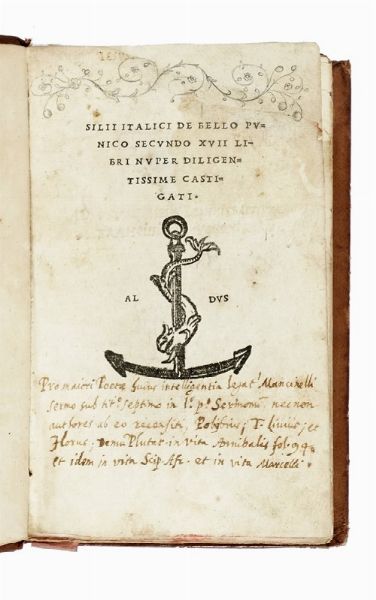 SILII ITALICI DE BELLO PV=
NICO SECVNDO XVII LI=
BRI NVPER DILIGEN=
TISSIME CASTI=
GATI.
AL DVS
Pro maiori Poetæ huius intelligentia legat' Mancinelli
sermo sub tit° septimo in l° p° Sermonũ necnon
authores ab eo recensiti, Polybius; T. Livius; et
Florus; Demũ Plutar. in vita Annibalis fol. 94.
et idem in vita Scip. Afr. et in vita Marcelli.